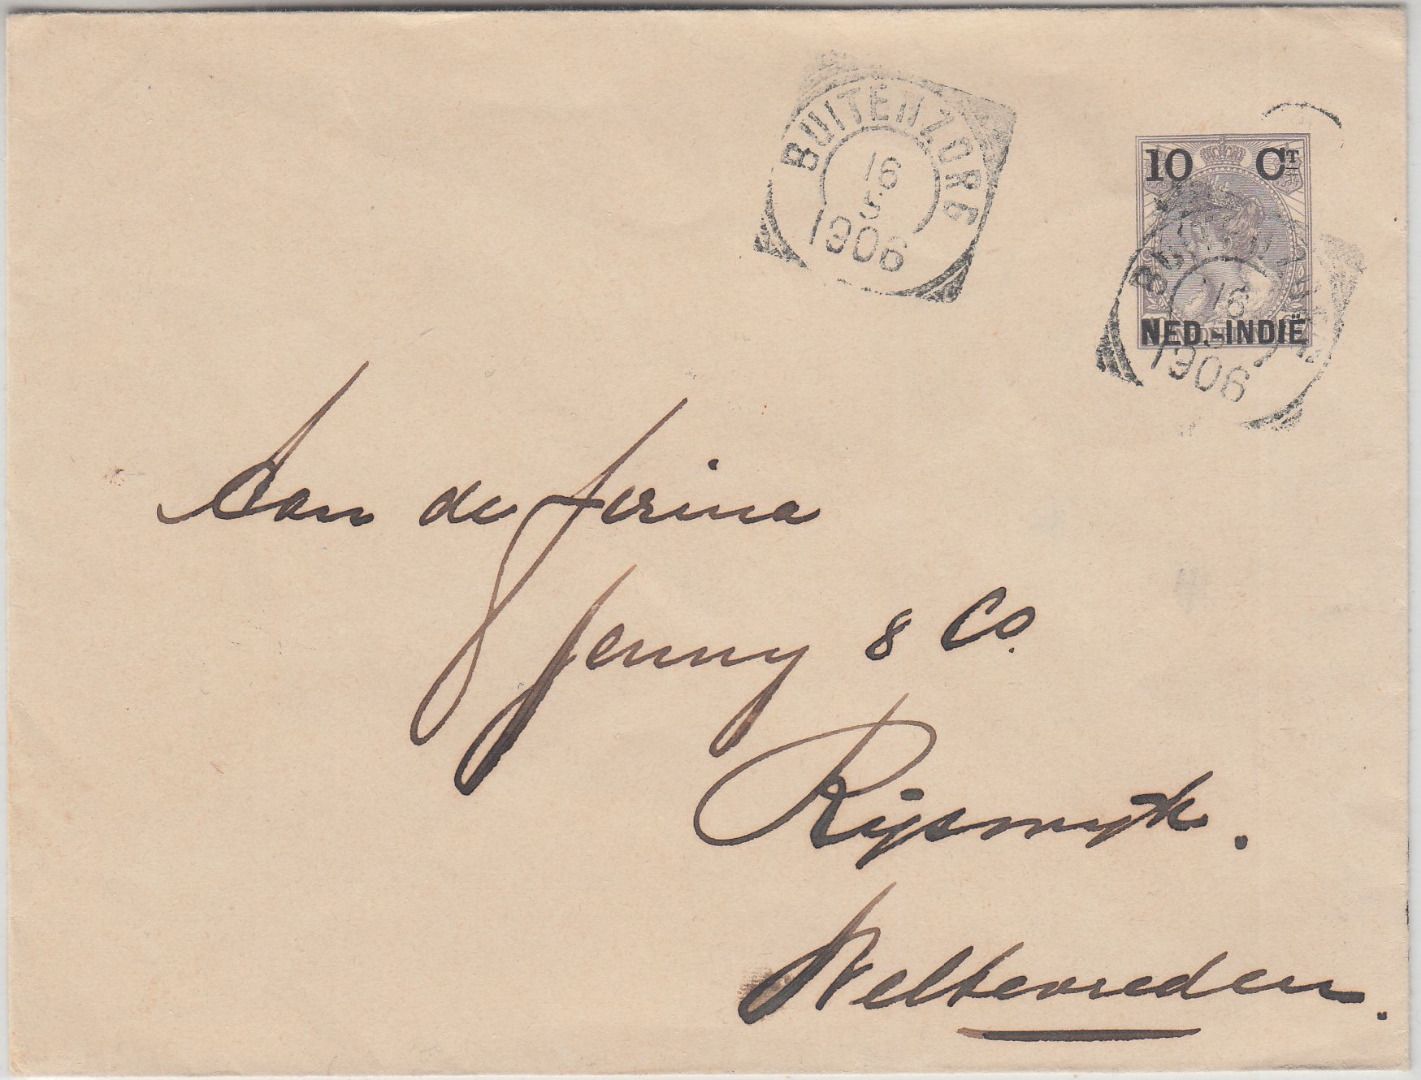 BUITENZORG
16
5
1906
10 CT
BUITENZORG
16
5
1906
NED.-INDIË
Aan de firma
Jenny & Co.
Rijswyk.
Weltevreden.